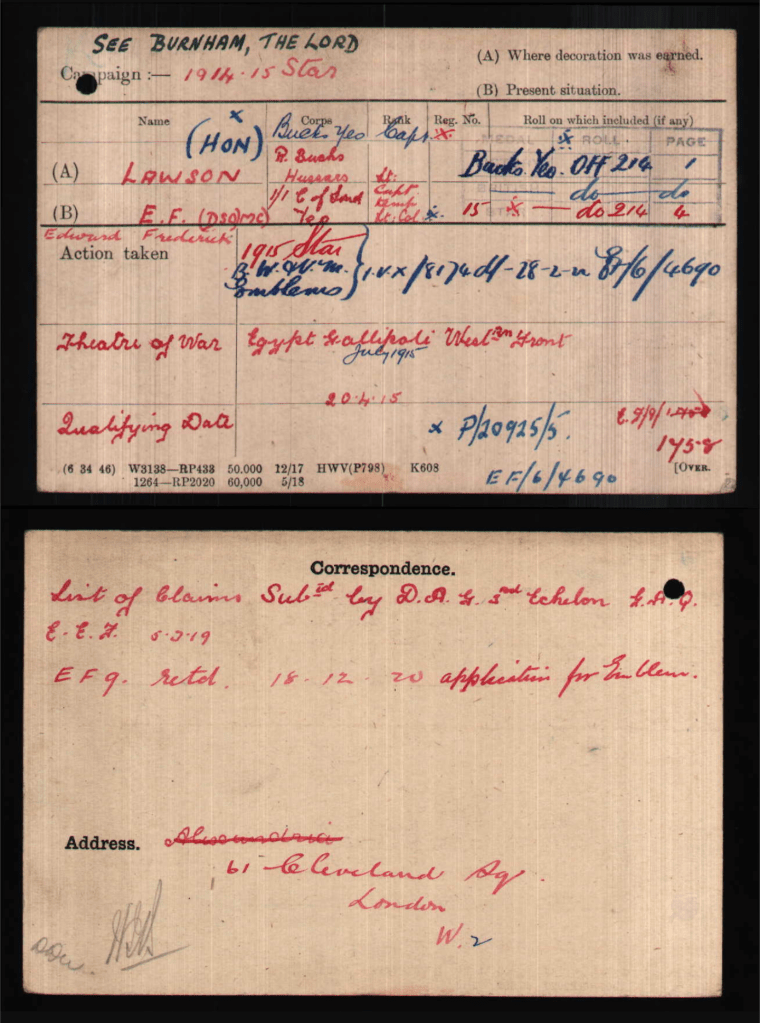 SEE BURNHAM, THE LORD
Campaign :— 1914-15 Star
(A) Where decoration was earned.
(B) Present situation.
Name Corps Rank Reg. No. Roll on which included (if any)
x
(HON) Bucks Yeo Capt x
MEDAL ROLL PAGE
(A) LAWSON R. Bucks Hussars Lt: Bucks. Yeo. Off 214 1
Capt — do — do
(B) E.F. (DSO, MC) 1/1 C of Lond Yeo Temp Lt. Col x. 15 x — do 214 4
Edward Frederick
Action taken 1915 Star
B.W. & V.M.
Emblems } I.V.X/8174 d/- 28-2-21 EF/6/4690
Theatre of War Egypt Gallipoli Westrn Front
July 1915
20.4.15
Qualifying Date x P/20925/5. E.F/9/
1758
(6 34 46) W3138—RP433 50.000 12/17 HWV(P798) K608 [OVER.
1264—RP2020 60,000 5/18 EF/6/4690
Correspondence.
List of Claims Subtd by D.A.G. 3rd Echelon G.H.Q.
E.E.F. 5-3-19
EF9. retd. 18-12-20 application for Emblem.
Address. Alexandria
61 Cleveland Sq.
London
W.2